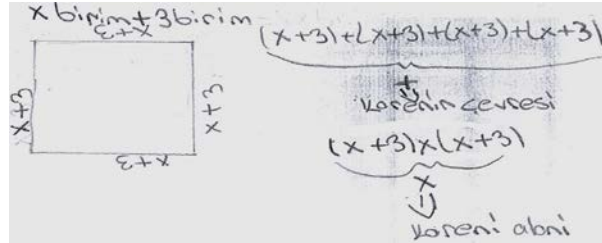 x birim + 3 birim
x+3
x+3
x+3
x+3
(x+3)+(x+3)+(x+3)+(x+3)
+
karenin çevresi
(x+3)x(x+3)
x
kareni alanı